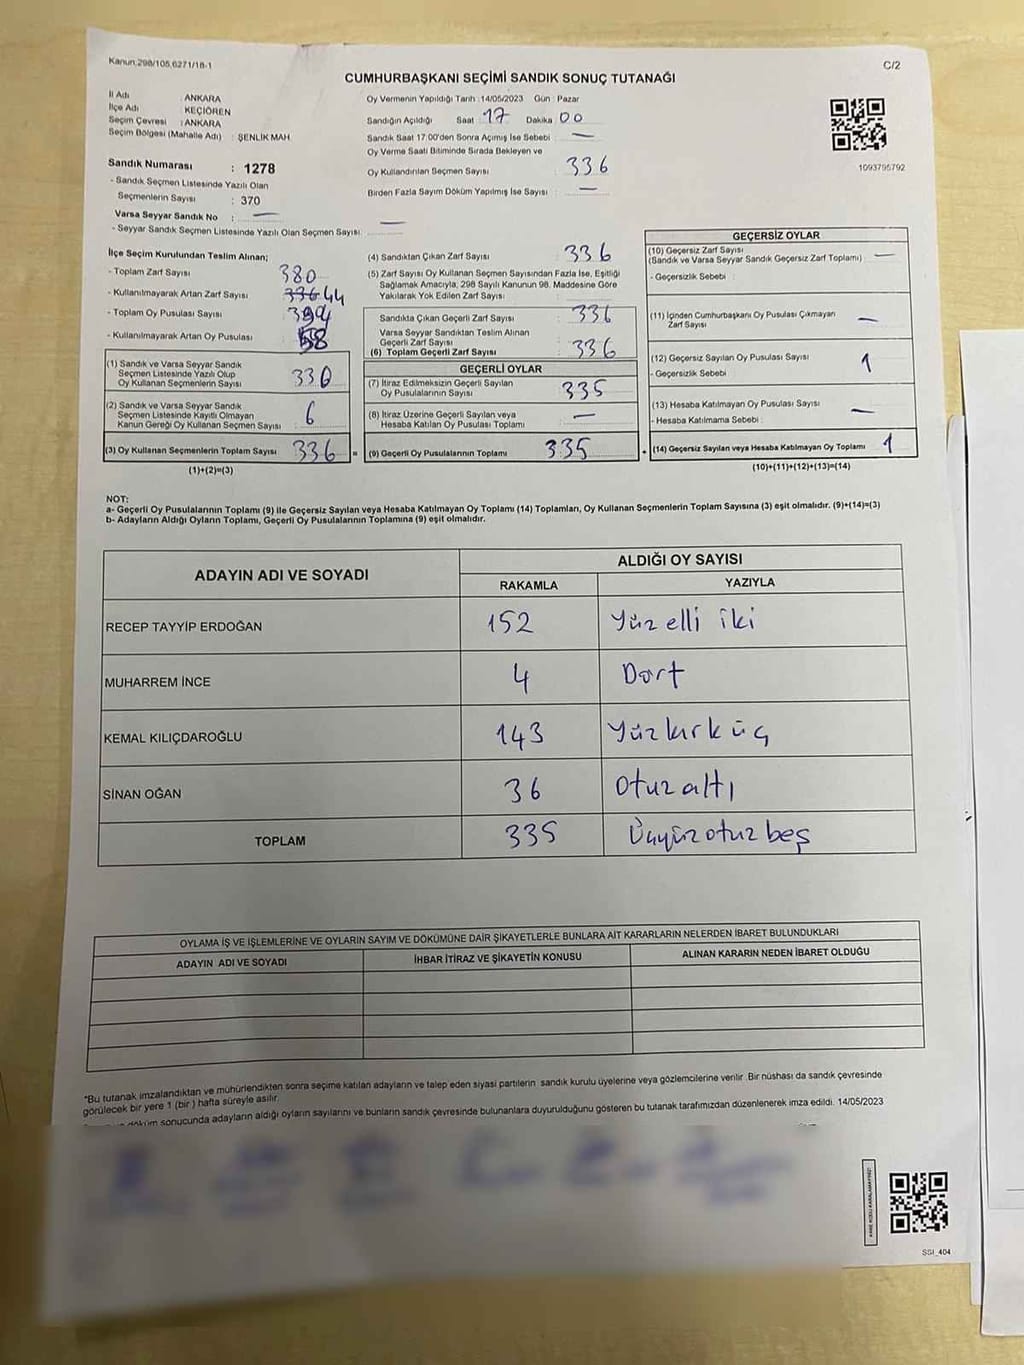 Kanun:298/105,6271/18-1
C/2
CUMHURBAŞKANI SEÇİMİ SANDIK SONUÇ TUTANAĞI
İl Adı : ANKARA
İlçe Adı : KEÇİÖREN
Seçim Çevresi : ANKARA
Seçim Bölgesi (Mahalle Adı) : ŞENLİK MAH.
Sandık Numarası : 1278
- Sandık Seçmen Listesinde Yazılı Olan
Seçmenlerin Sayısı : 370
Varsa Seyyar Sandık No : —
- Seyyar Sandık Seçmen Listesinde Yazılı Olan Seçmen Sayısı: —
Oy Vermenin Yapıldığı Tarih :14/05/2023 Gün : Pazar
Sandığın Açıldığı Saat 17 Dakika 00
Sandık Saat 17:00'den Sonra Açımış İse Sebebi : —
Oy Verme Saati Bitiminde Sırada Bekleyen ve
Oy Kullandırılan Seçmen Sayısı : 336
Birden Fazla Sayım Döküm Yapılmış İse Sayısı : —
1093795792
İlçe Seçim Kurulundan Teslim Alınan;
- Toplam Zarf Sayısı : 380
- Kullanılmayarak Artan Zarf Sayısı : 336 44
- Toplam Oy Pusulası Sayısı : 394
- Kullanılmayarak Artan Oy Pusulası : 58
(1) Sandık ve Varsa Seyyar Sandık
Seçmen Listesinde Yazılı Olup
Oy Kullanan Seçmenlerin Sayısı : 330
(2) Sandık ve Varsa Seyyar Sandık
Seçmen Listesinde Kayıtlı Olmayan
Kanun Gereği Oy Kullanan Seçmen Sayısı : 6
(3) Oy Kullanan Seçmenlerin Toplam Sayısı : 336
(1)+(2)=(3)
(4) Sandıktan Çıkan Zarf Sayısı : 336
(5) Zarf Sayısı Oy Kullanan Seçmen Sayısından Fazla İse, Eşitliği
Sağlamak Amacıyla; 298 Sayılı Kanunun 98. Maddesine Göre
Yakılarak Yok Edilen Zarf Sayısı :
Sandıkta Çıkan Geçerli Zarf Sayısı : 336
Varsa Seyyar Sandıktan Teslim Alınan
Geçerli Zarf Sayısı :
(6) Toplam Geçerli Zarf Sayısı : 336
GEÇERLİ OYLAR
(7) İtiraz Edilmeksizin Geçerli Sayılan
Oy Pusulalarının Sayısı : 335
(8) İtiraz Üzerine Geçerli Sayılan veya
Hesaba Katılan Oy Pusulası Toplamı : —
= (9) Geçerli Oy Pusulalarının Toplamı : 335
GEÇERSİZ OYLAR
(10) Geçersiz Zarf Sayısı
(Sandık ve Varsa Seyyar Sandık Geçersiz Zarf Toplamı) : —
- Geçersizlik Sebebi :
(11) İçinden Cumhurbaşkanı Oy Pusulası Çıkmayan
Zarf Sayısı : —
(12) Geçersiz Sayılan Oy Pusulası Sayısı : 1
- Geçersizlik Sebebi :
(13) Hesaba Katılmayan Oy Pusulası Sayısı : —
- Hesaba Katılmama Sebebi :
+ (14) Geçersiz Sayılan veya Hesaba Katılmayan Oy Toplamı : 1
(10)+(11)+(12)+(13)=(14)
NOT:
a- Geçerli Oy Pusulalarının Toplamı (9) ile Geçersiz Sayılan veya Hesaba Katılmayan Oy Toplamı (14) Toplamları, Oy Kullanan Seçmenlerin Toplam Sayısına (3) eşit olmalıdır. (9)+(14)=(3)
b- Adayların Aldığı Oyların Toplamı, Geçerli Oy Pusulalarının Toplamına (9) eşit olmalıdır.
ADAYIN ADI VE SOYADI
ALDIĞI OY SAYISI
RAKAMLA YAZIYLA
RECEP TAYYİP ERDOĞAN 152 Yüz elli iki
MUHARREM İNCE 4 Dört
KEMAL KILIÇDAROĞLU 143 Yüzkırk üç
SİNAN OĞAN 36 Otuz altı
TOPLAM 335 Üçyüzotuz beş
OYLAMA İŞ VE İŞLEMLERİNE VE OYLARIN SAYIM VE DÖKÜMÜNE DAİR ŞİKAYETLERLE BUNLARA AİT KARARLARIN NELERDEN İBARET BULUNDUKLARI
ADAYIN ADI VE SOYADI İHBAR İTİRAZ VE ŞİKAYETİN KONUSU ALINAN KARARIN NEDEN İBARET OLDUĞU
*Bu tutanak imzalandıktan ve mühürlendikten sonra seçime katılan adayların ve talep eden siyasi partilerin sandık kurulu üyelerine veya gözlemcilerine verilir .Bir nüshası da sandık çevresinde
görülecek bir yere 1 (bir ) hafta süreyle asılır.
döküm sonucunda adayların aldığı oyların sayılarını ve bunların sandık çevresinde bulunanlara duyurulduğunu gösteren bu tutanak tarafımızdan düzenlenerek imza edildi. 14/05/2023
SSI_404